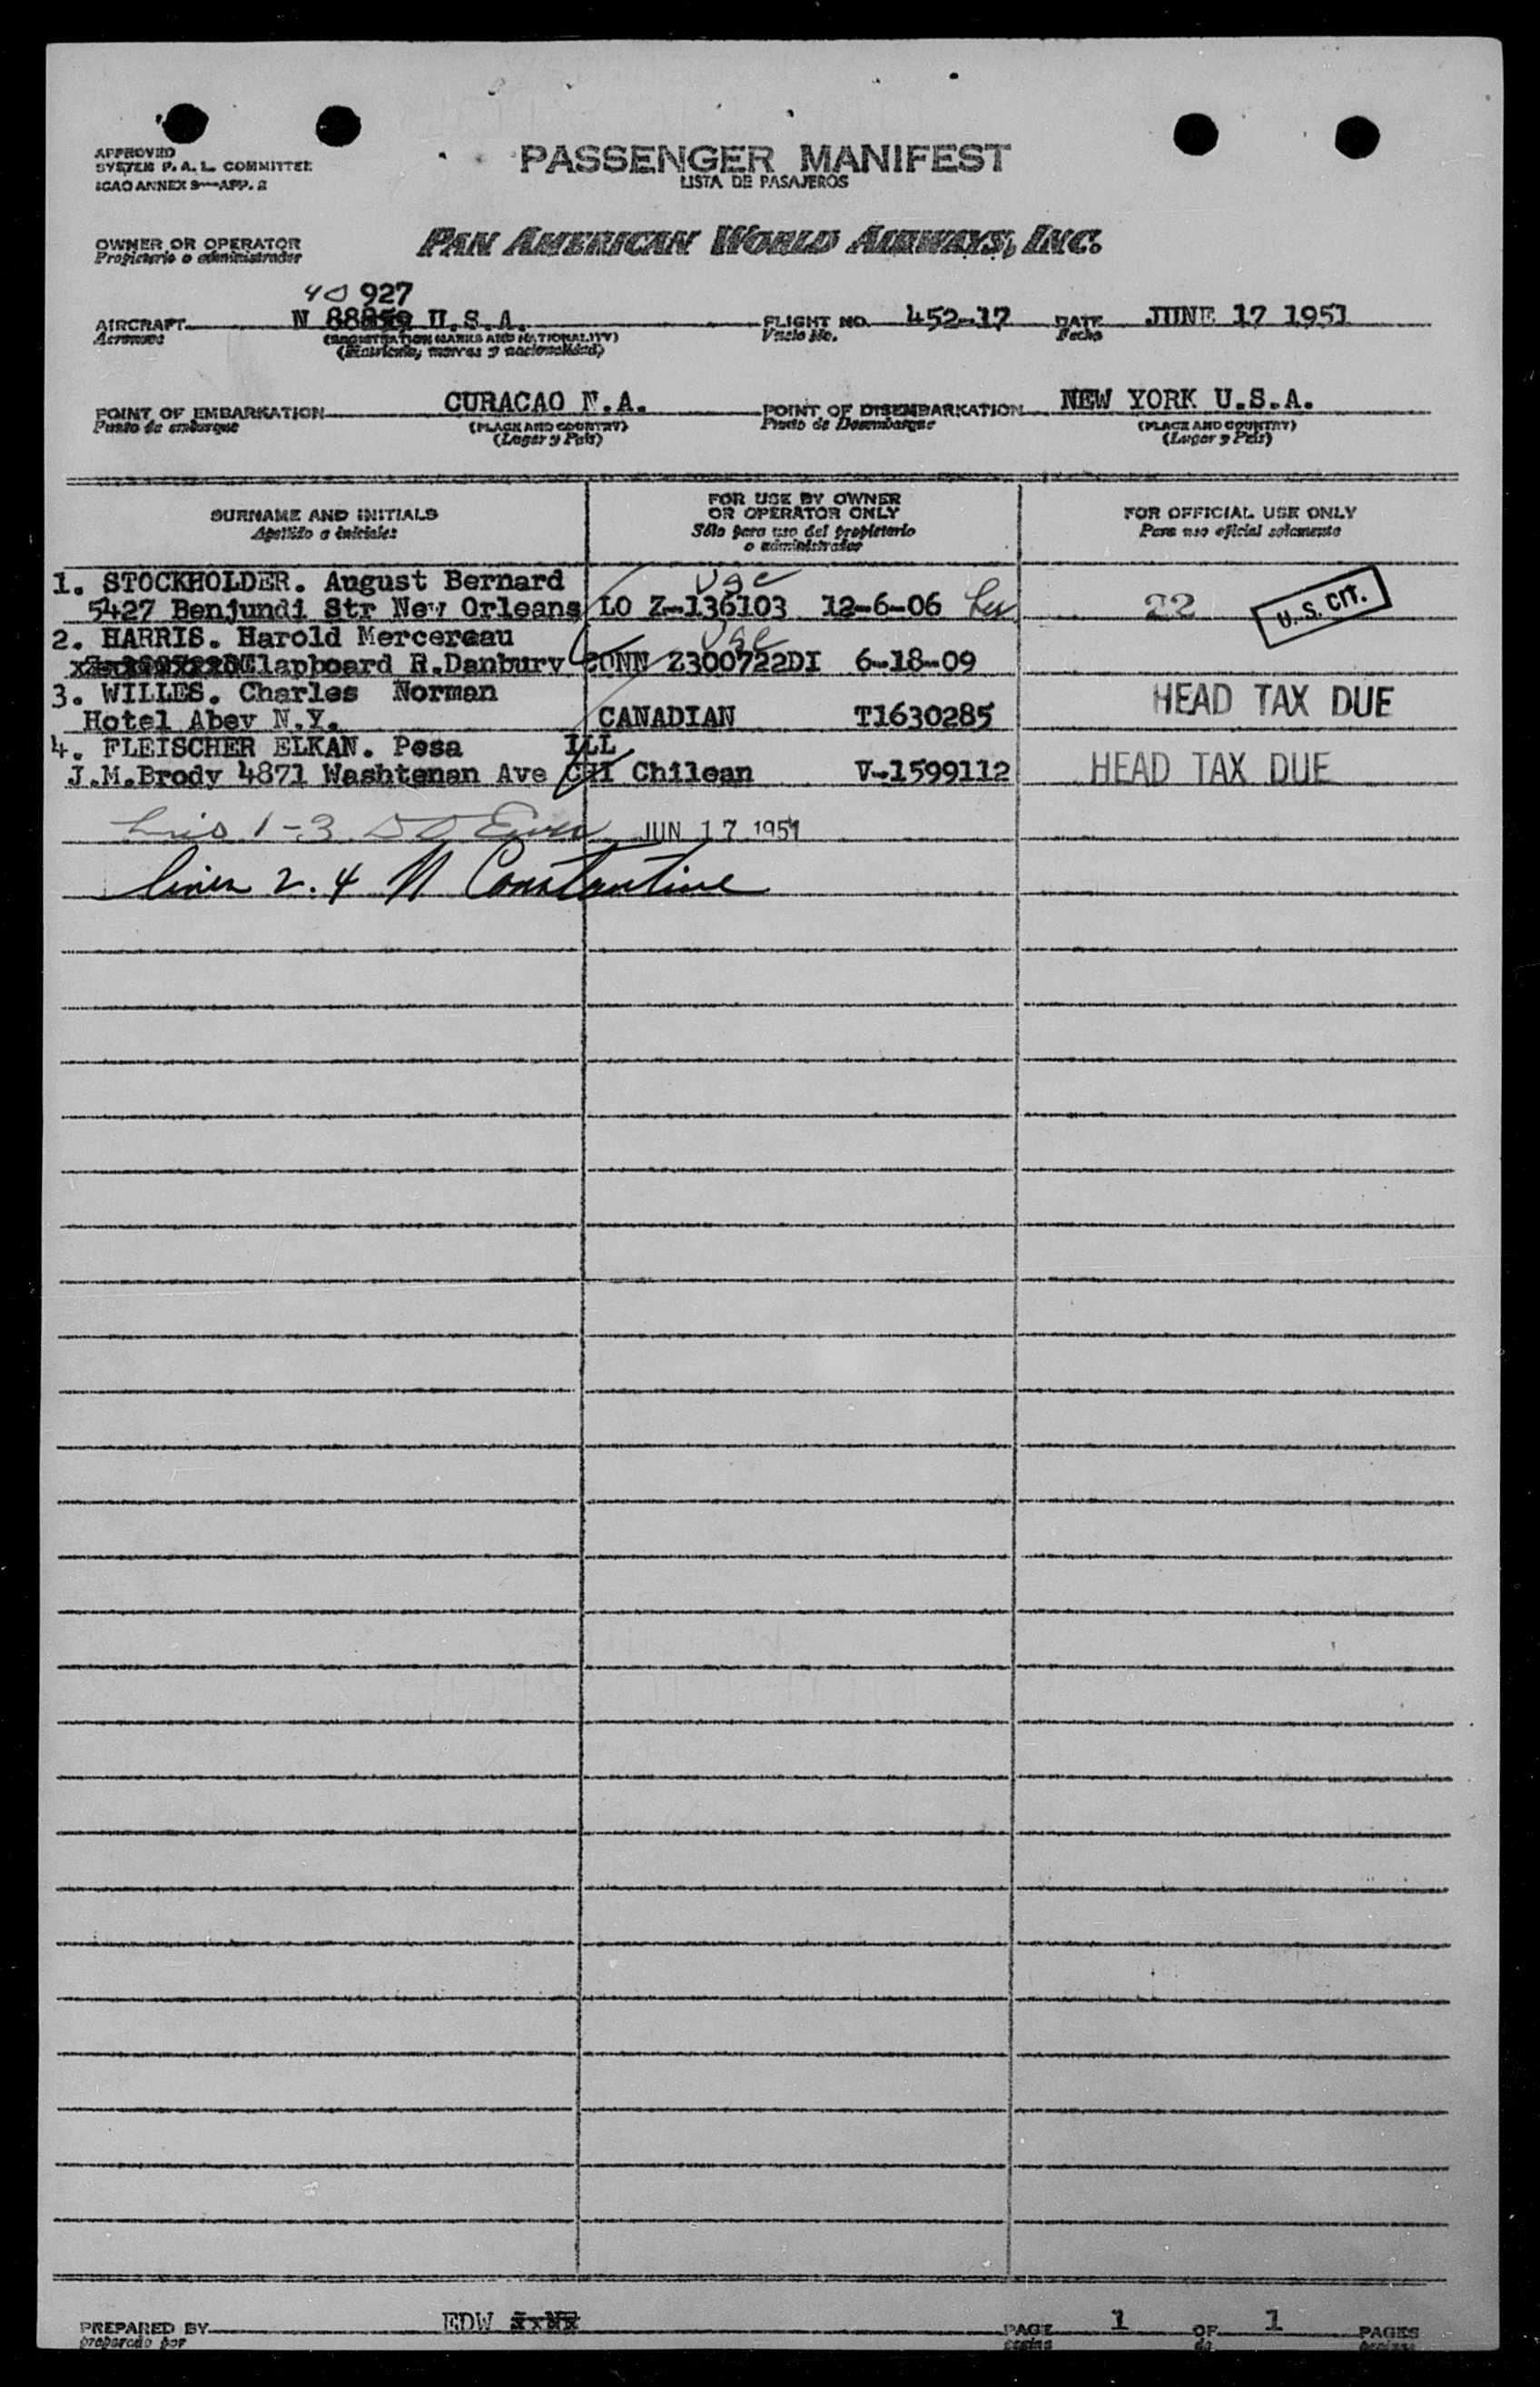 APPROVED
SYSTEM P. A. L. COMMITTEE
ICAO ANNEX 9—APP. 2
PASSENGER MANIFEST
LISTA DE PASAJEROS
OWNER OR OPERATOR
Propietario o administrador
PAN AMERICAN WORLD AIRWAYS, INC.
40 927
AIRCRAFT N 88859 U.S.A. FLIGHT NO. 452-17 DATE JUNE 17 1951
Aeronave (REGISTRATION MARKS AND NATIONALITY) Vuelo No. Fecha
(Matrícula, marcas y nacionalidad)
POINT OF EMBARKATION CURACAO N.A. POINT OF DISEMBARKATION NEW YORK U.S.A.
Punto de embarque (PLACE AND COUNTRY) Punto de Desembarque (PLACE AND COUNTRY)
(Lugar y País) (Lugar y País)
SURNAME AND INITIALS FOR USE BY OWNER OR OPERATOR ONLY FOR OFFICIAL USE ONLY
Apellido e iniciales Sólo para uso del propietario o administrador Para uso oficial solamente
1. STOCKHOLDER. August Bernard
5427 Benjundi Str New Orleans LO Z-136103 12-6-06 22 U. S. CIT.
2. HARRIS. Harold Mercereau
Clapboard R.Danbury CONN Z300722DI 6-18-09
3. WILLES. Charles Norman HEAD TAX DUE
Hotel Abey N.Y. CANADIAN T1630285
4. FLEISCHER ELKAN. Posa ILL
J.M.Brody 4871 Washtenan Ave CHI Chilean V-1599112 HEAD TAX DUE
1-3 JUN 17 1951
lines 2. 4 N Constantine
PREPARED BY EDW PAGE 1 OF 1 PAGES
preparado por página de páginas